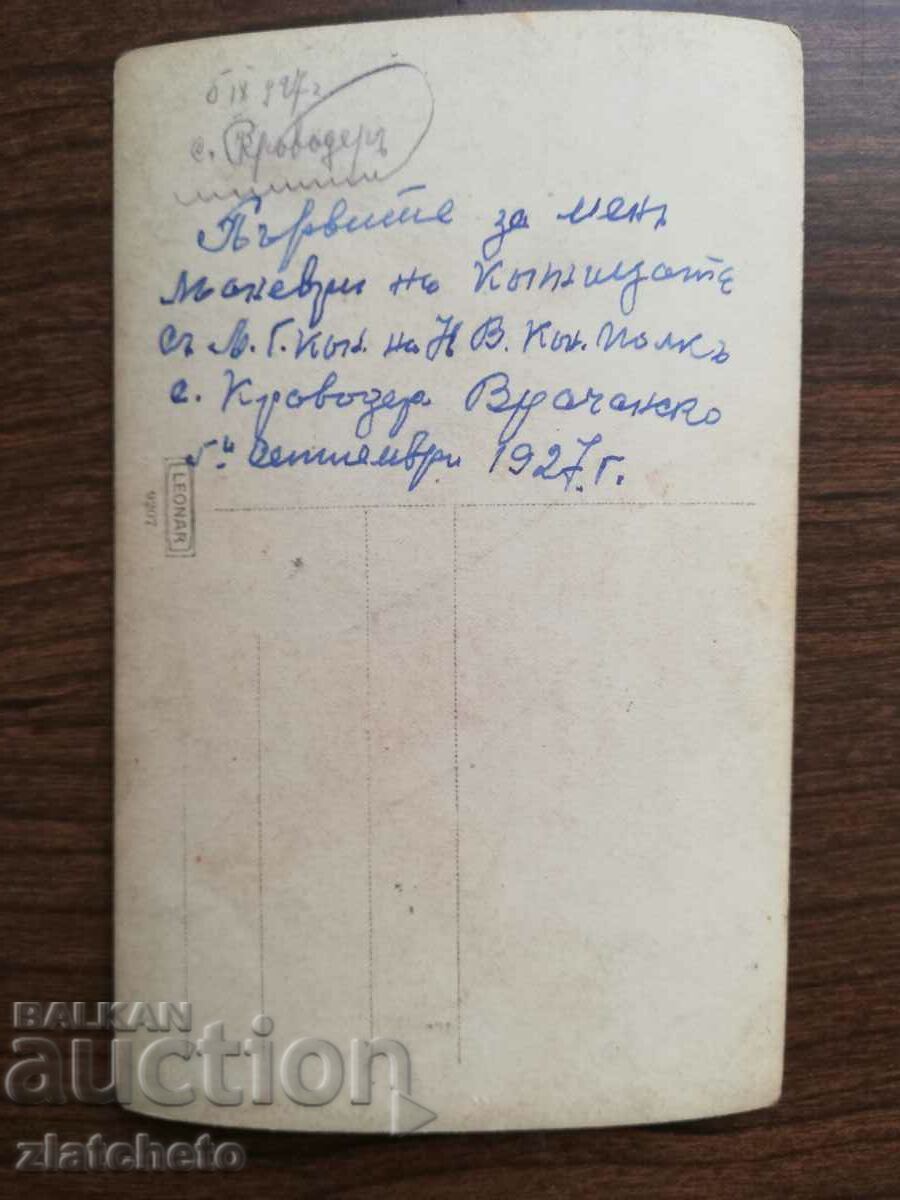 5 IX 927 г
с. Кроводеръ
Първите за мен
маневри на Конницата
съ Л. Г. Кон. на Н В. Кон. полкъ
с. Кроводер Врачанско
5й септември 1927 г.
LEONAR
9207
BALKAN
auction
zlatcheto